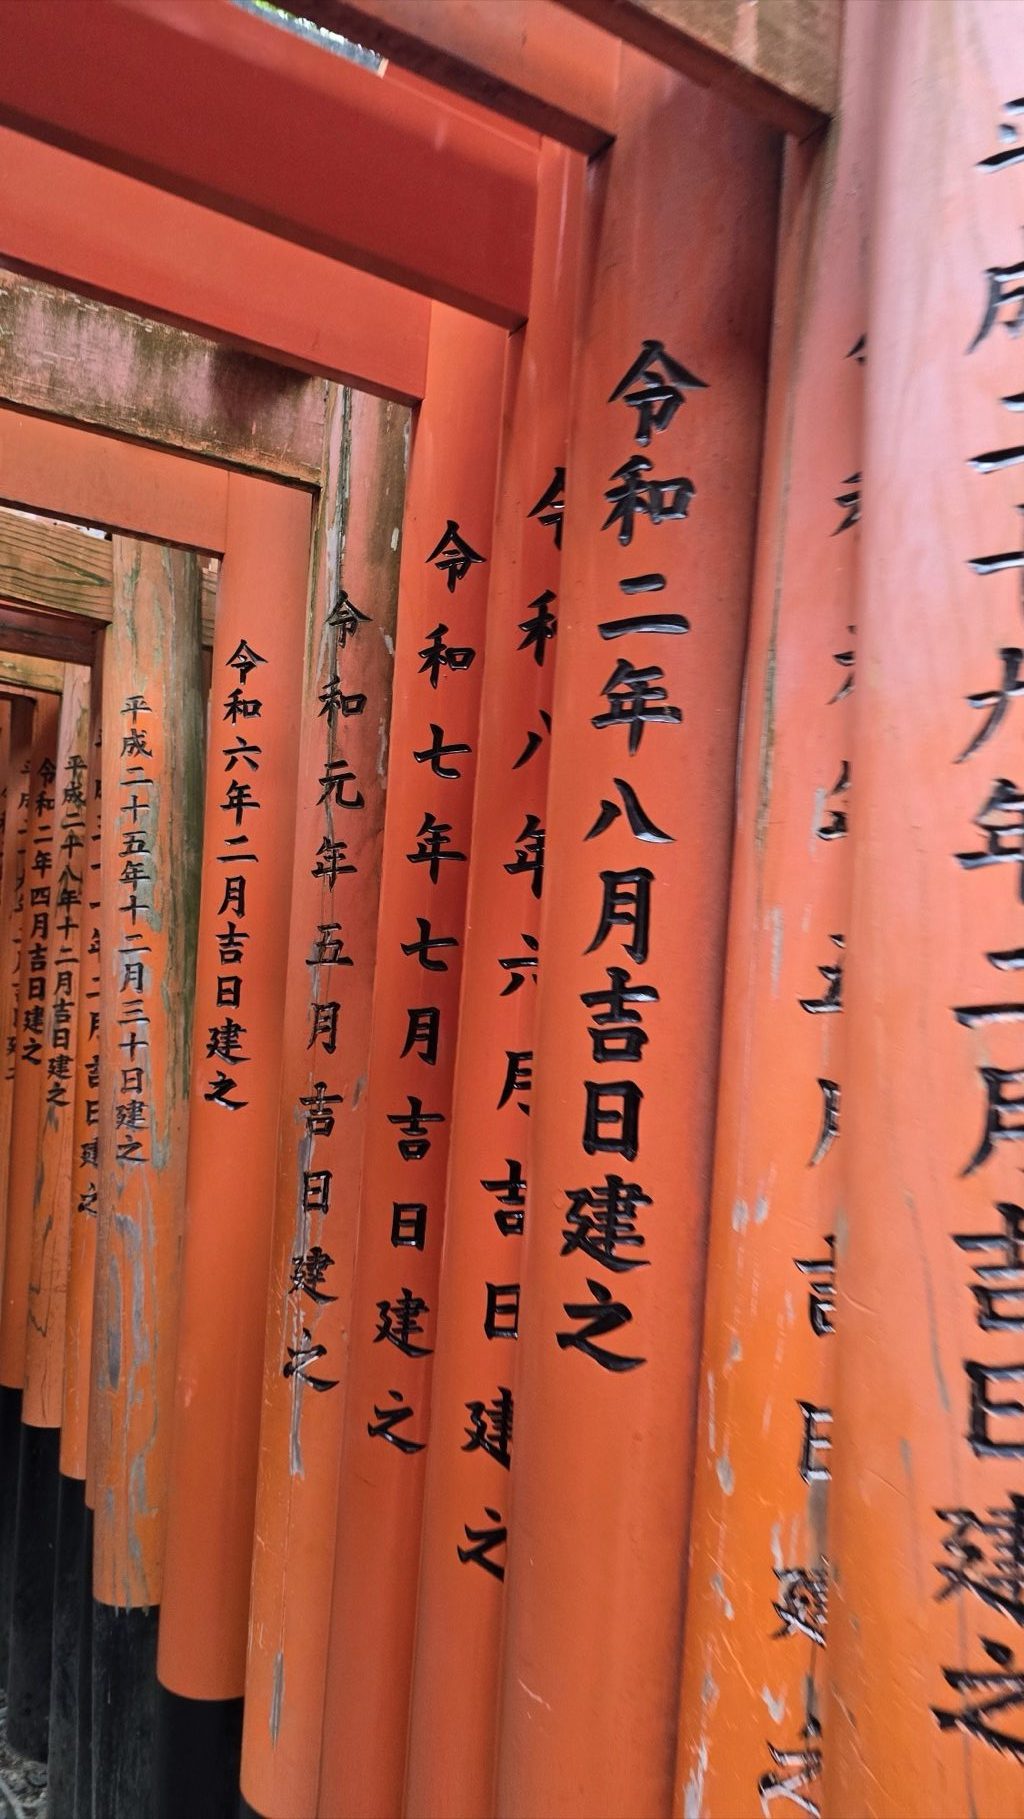 平成二十九年二月吉日建之
令和元年五月吉日建之
令和二年八月吉日建之
令和八年六月吉日建之
令和七年七月吉日建之
令和元年五月吉日建之
令和六年二月吉日建之
平成二十五年十二月三十日建之
平成三十一年二月吉日建之
平成二十八年十二月吉日建之
令和二年四月吉日建之